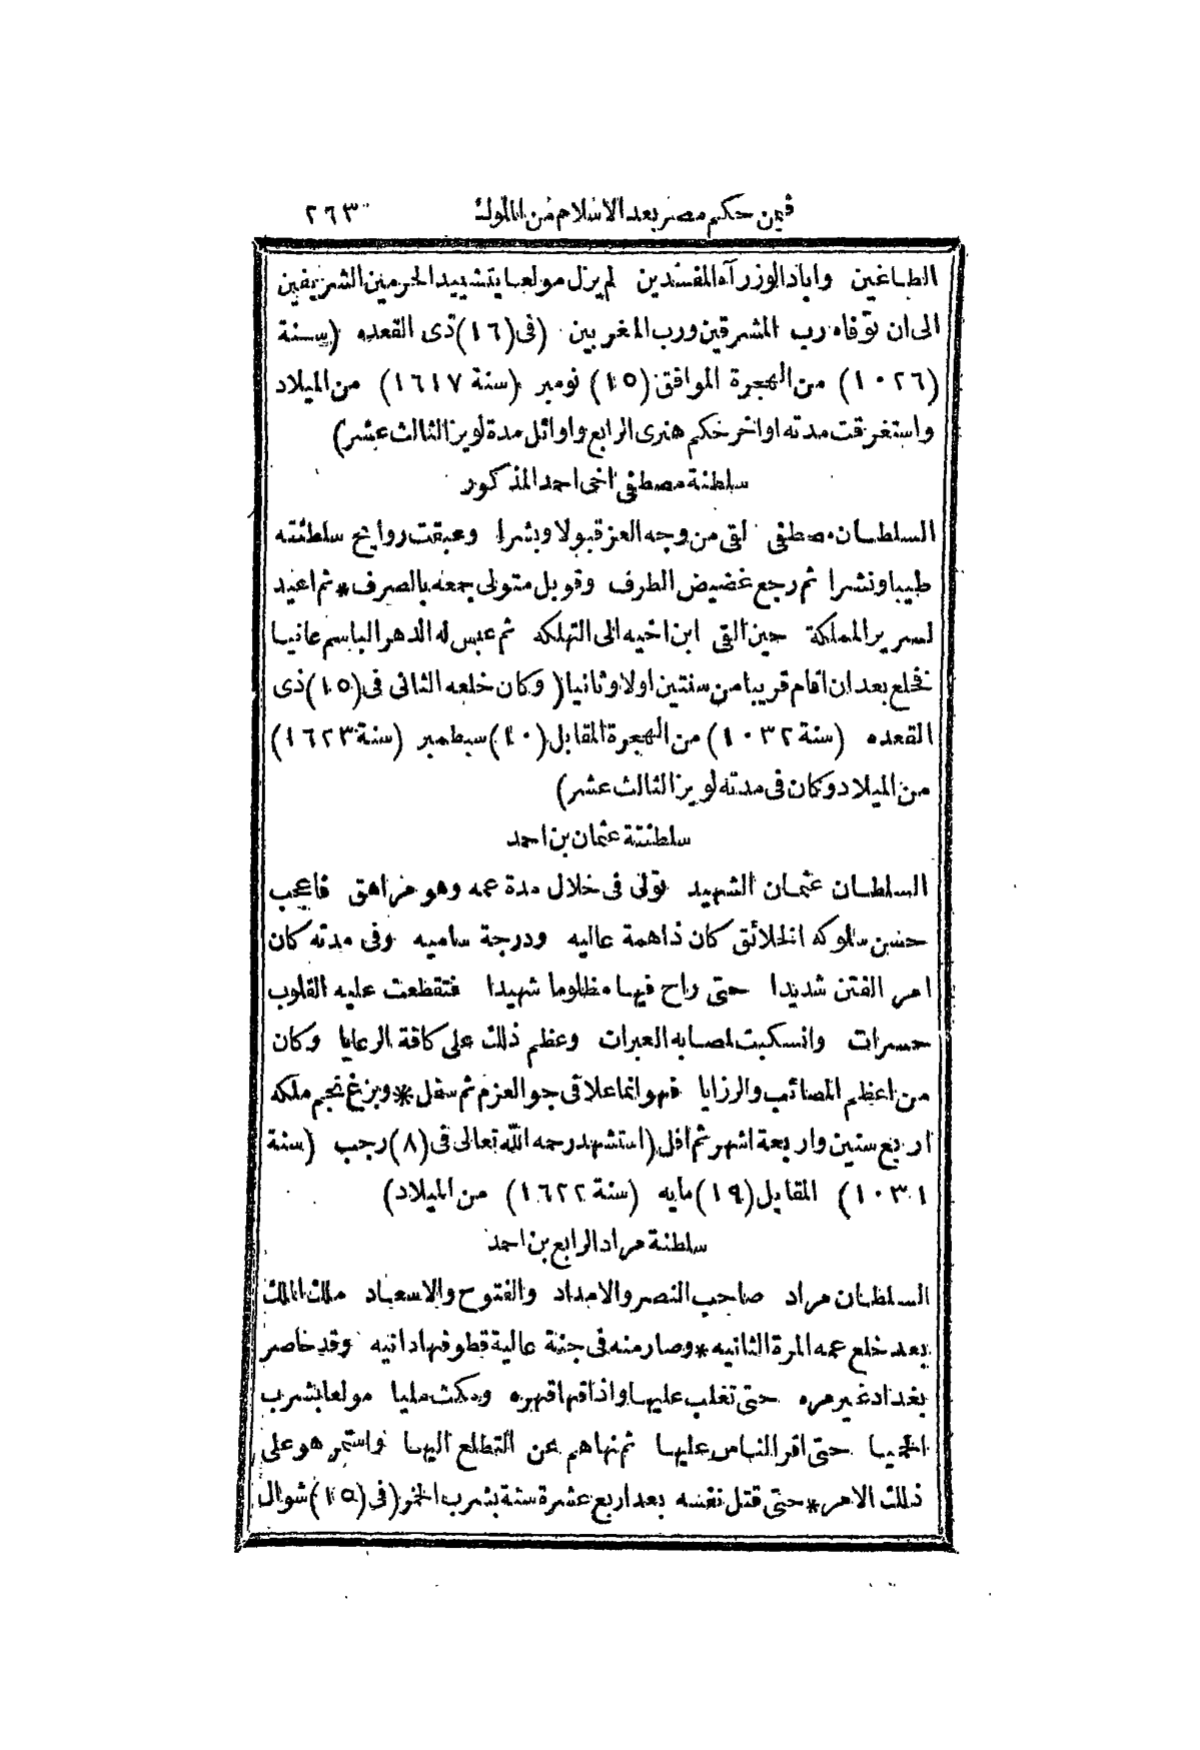 فيمن حكم مصر بعد الاسلام من الملوك ٢٦٣
الطاغين واباد الوزرآء المفسدين لم يزل مولعا بتشييد الحرمين الشريفين
الى ان توفاه رب المشرقين ورب المغربين (فى (١٦) ذى القعده (سنة
(١٠٢٦) من الهجرة الموافق (١٥) نومبر (سنة ١٦١٧) من الميلاد
واستغرقت مدته اواخر حكم هنرى الرابع واوائل مدة لويز الثالث عشر)
سلطنة مصطفى اخى احمد المذكور
السلطان مصطفى لقى من وجه العز قبولا وبشرا وعبقت روايح سلطنته
طيبا ونشرا ثم رجع غضيض الطرف وقوبل متولى جمعه بالصرف * ثم اعيد
لسرير المملكة حين القى ابن اخيه الى التهلكه ثم عبس له الدهر الباسم عانيا
فخلع بعد ان اقام قريبا من سنتين اولا وثانيا (وكان خلعه الثانى فى (١٥) ذى
القعده (سنة ١٠٣٢) من الهجرة المقابل (١٠) سبطمبر (سنة ١٦٢٣)
من الميلاد وكان فى مدته لويز الثالث عشر)
سلطنتة عثمان بن احمد
السلطان عثمان الشهيد تولى فى خلال مدة عمه وهو مراهق فاعجب
حسن سلوكه الخلائق كان ذا همة عاليه ودرجة ساميه وفى مدته كان
امر الفتن شديدا حتى راح فيها مظلوما شهيدا فتقطعت عليه القلوب
حسرات وانسكبت لمصابه العبرات وعظم ذلك على كافة الرعايا وكان
من اعظم المصائب والرزايا فهو انما علا فى جو العزم ثم سفل * وبزغ نجم ملكه
اربع سنين واربعة اشهر ثم افل (استشهد رحمه الله تعالى فى (٨) رجب (سنة
١٠٣١) المقابل (١٩) مايه (سنة ١٦٢٢) من الميلاد)
سلطنة مراد الرابع بن احمد
السلطان مراد صاحب النصر والامداد والفتوح والاسعاد ملك الملك
بعد خلع عمه المرة الثانيه * وصار منه فى جنة عالية قطوفها دانيه وقد حاصر
بغداد غير مره حتى تغلب عليها واذاقها قهره ومكث مليا مولعا بشرب
الحميا حتى اقر الناس عليها ثم نهاهم عن التطلع اليها واستمر هو على
ذلك الامر * حتى قتل نفسه بعد اربع عشرة سنة بشرب الخمر (فى (١٥) شوال